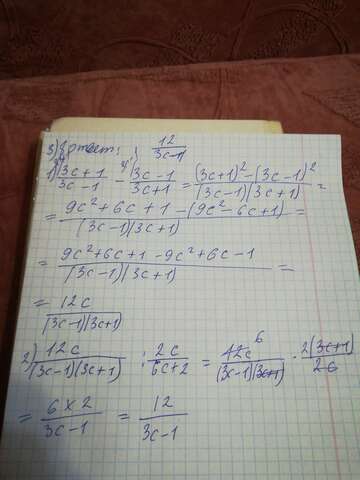 3) Ответ: 12/(3c-1)
1) (3c+1)/(3c-1) - (3c-1)/(3c+1) = ((3c+1)² - (3c-1)²)/((3c-1)(3c+1)) =
= (9c²+6c+1-(9c²-6c+1))/((3c-1)(3c+1)) =
= (9c²+6c+1-9c²+6c-1)/((3c-1)(3c+1)) =
= 12c/((3c-1)(3c+1))
2) 12c/((3c-1)(3c+1)) : 2c/(6c+2) = 12c 6/((3c-1)(3c+1)) · 2(3c+1)/2c
= (6×2)/(3c-1) = 12/(3c-1)